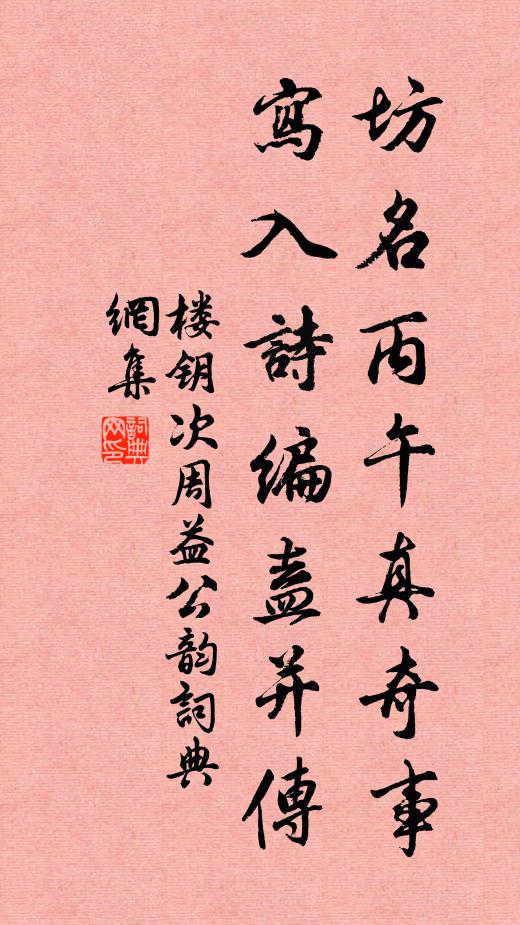 坊名丙午真奇事
寫入詩编盍并傳
楼钥次周益公韵詞典
網集
詞典网印